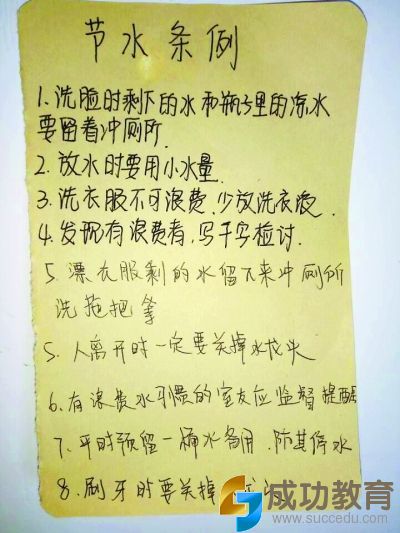 节水条例
1. 洗脸时剩下的水和瓶子里的凉水
要留着冲厕所
2. 放水时要用小水量
3. 洗衣服不可浪费.少放洗衣液.
4. 发现有浪费者,写千字检讨.
5. 漂衣服剩的水留下来冲厕所
洗拖把等
5. 人离开时一定要关掉水龙头
6. 有浪费水习惯的室友应监督提醒
7. 平时预留一桶水备用.防其停水
8. 刷牙时要关掉
成功教育
www.succedu.com